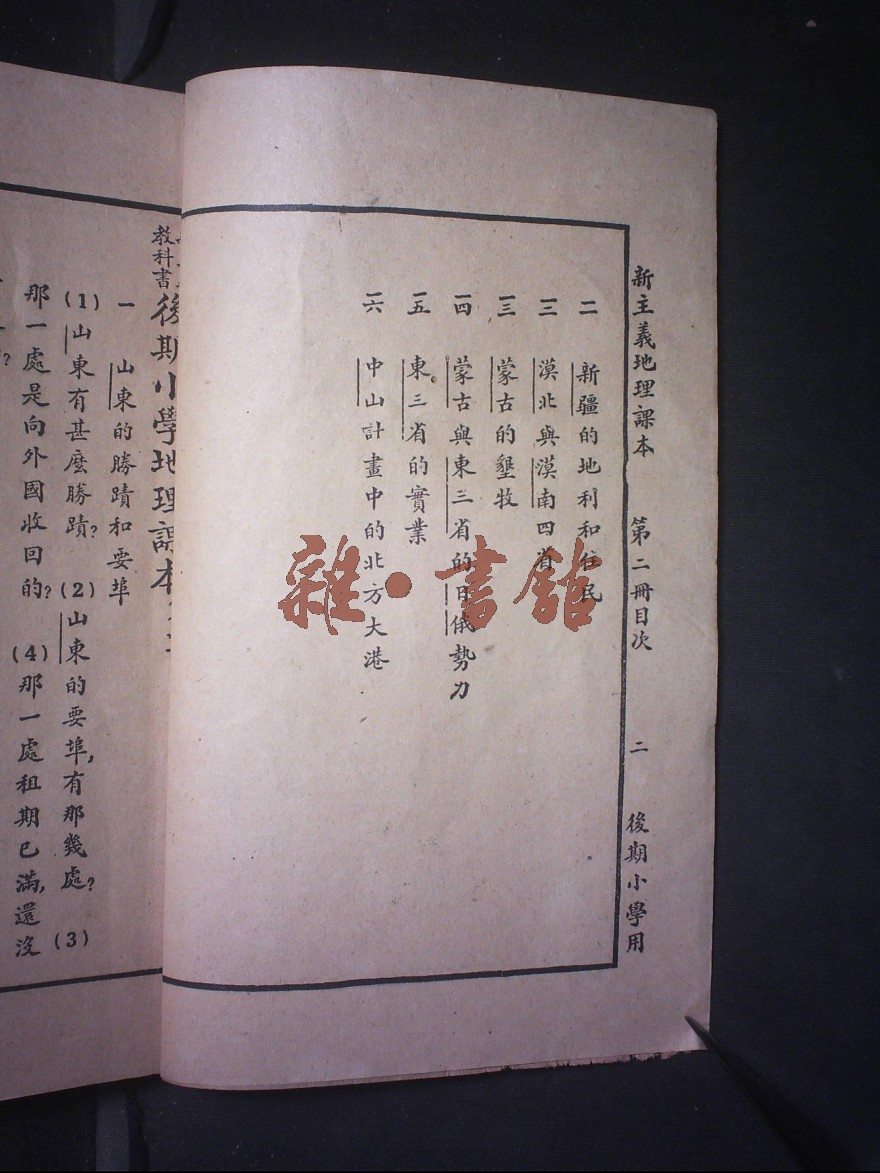 新主義地理課本 第二冊目次 二 後期小學用
一一 新疆的地利和住民
一二 漠北與漠南四省
一三 蒙古的墾牧
一四 蒙古與東三省的日俄勢力
一五 東三省的實業
一六 中山計畫中的北方大港
教科書 後期小學地理課本
一 山東的勝蹟和要埠
(1)山東有甚麼勝蹟?(2)山東的要埠,有那幾處?(3)
那一處是向外國收回的?(4)那一處租期已滿,還沒
?
雜·書館